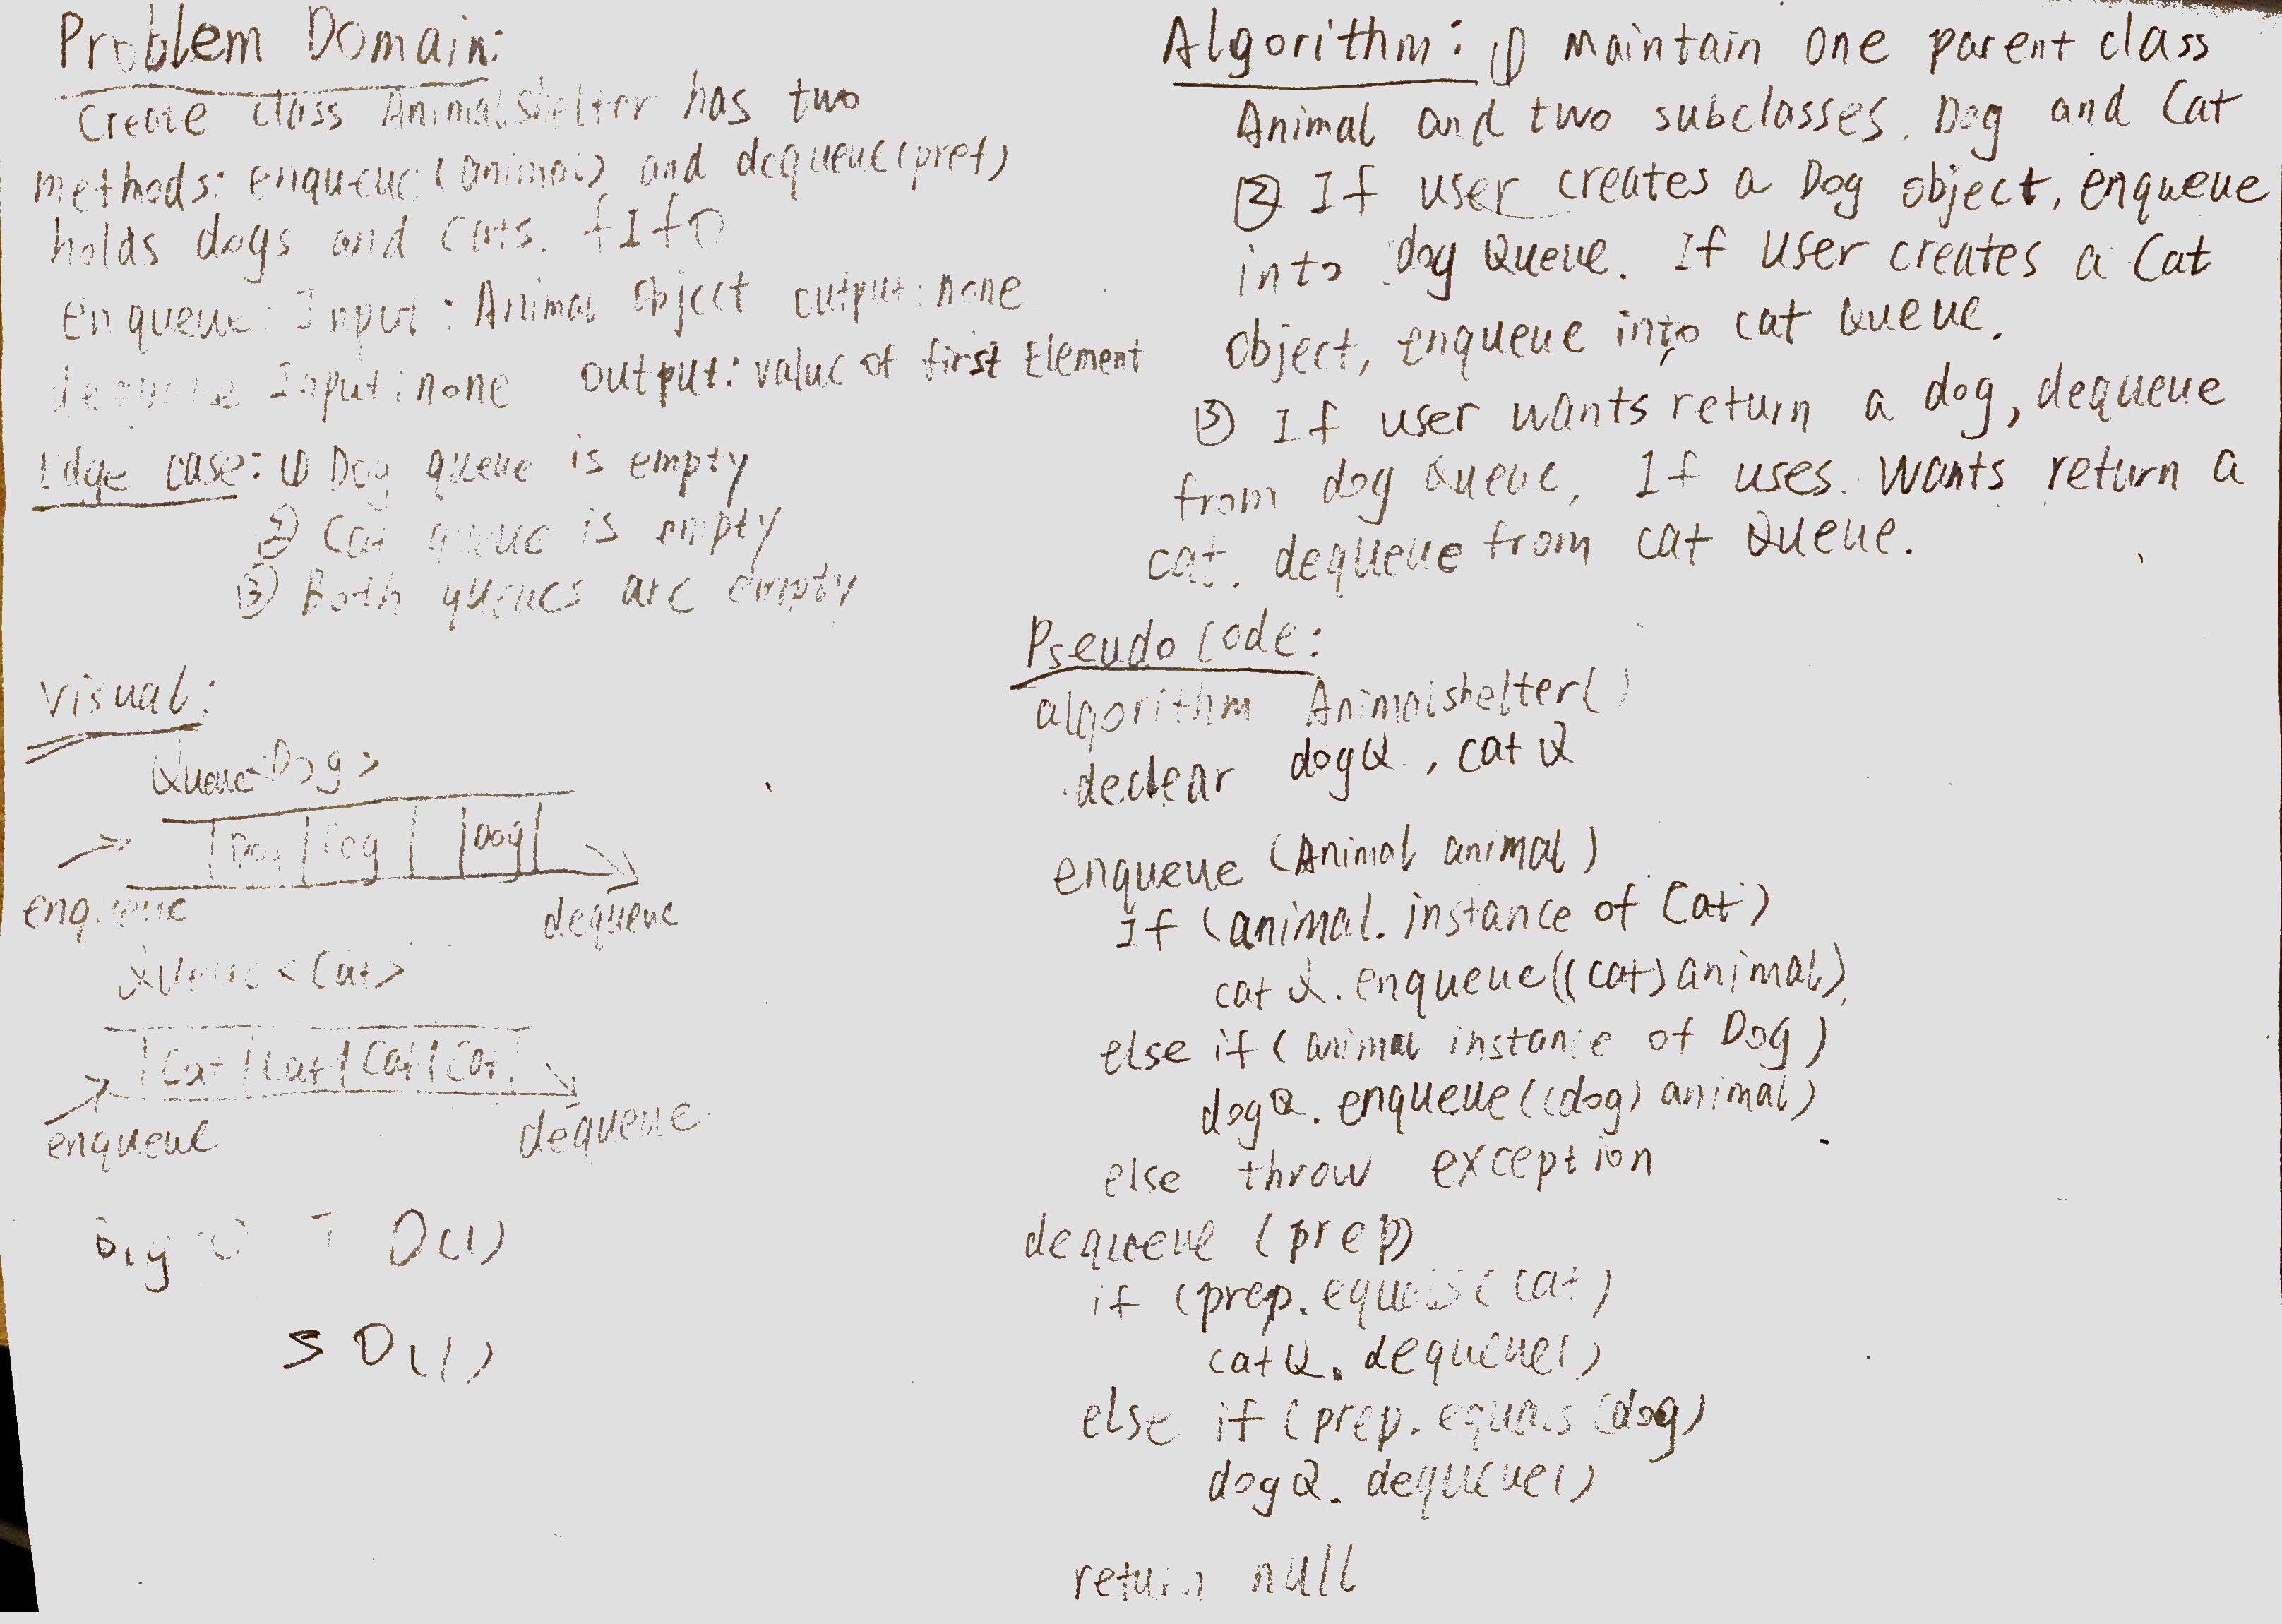 Problem Domain:
Create class Animalshelter has two
methods: enqueue(animal) and dequeue(pref)
holds dogs and cats. fIfO
enqueue: Input: Animal object output: none
dequeue Input: none output: value of first Element
Edge case: ① Dog queue is empty
② Cat queue is empty
③ Both queues are empty
Visual:
Queue<Dog>
Dog Dog Dog
enqueue dequeue
Queue<Cat>
Cat Cat Cat Cat
enqueue dequeue
big O T O(1)
S O(1)
Algorithm: ① Maintain one parent class
Animal and two subclasses. Dog and Cat
② If user creates a Dog object, enqueue
into dog Queue. If user creates a Cat
object, enqueue into cat Queue.
③ If user wants return a dog, dequeue
from dog Queue, If uses. wants return a
cat. dequeue from cat Queue.
Pseudo code:
algorithm Animalshelter()
declear dogQ, catQ
enqueue (Animal animal)
If (animal. instance of Cat)
catQ. enqueue((cat) animal)
else if (animal instance of Dog)
dogQ. enqueue((dog) animal)
else throw exception
dequeue (prep)
if (prep. equals (cat)
catQ. dequeue()
else if (prep. equals (dog)
dogQ. dequeue()
return null